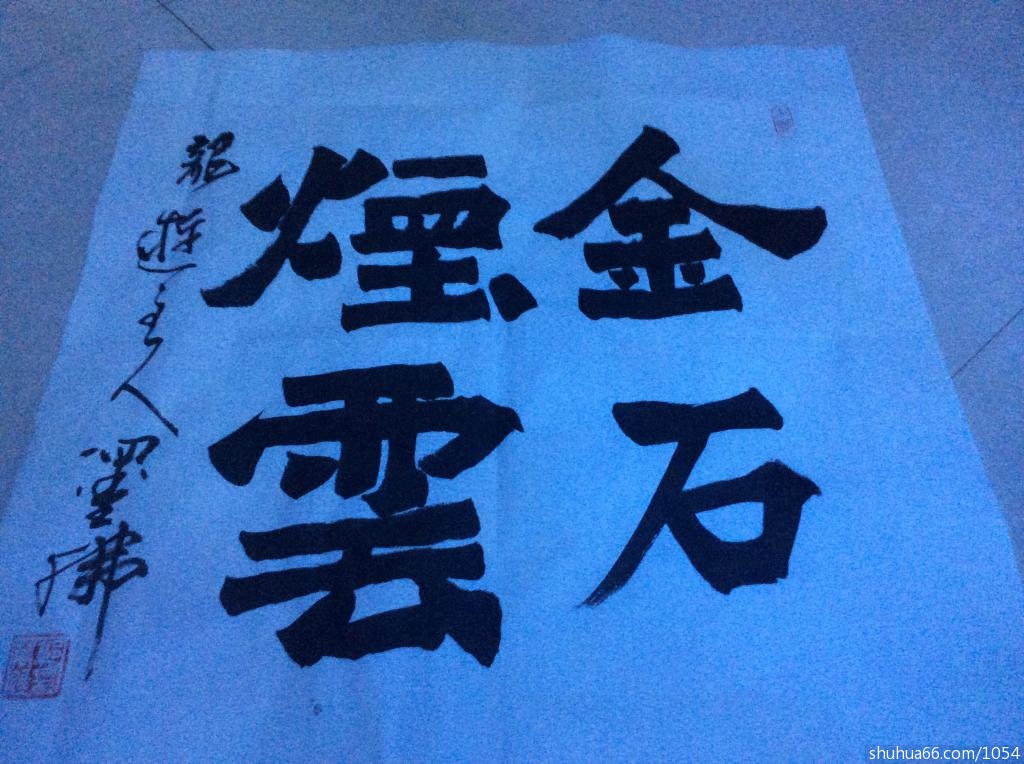 金石
煙雲
龍遊主人墨佛
shuhua66.com/1054